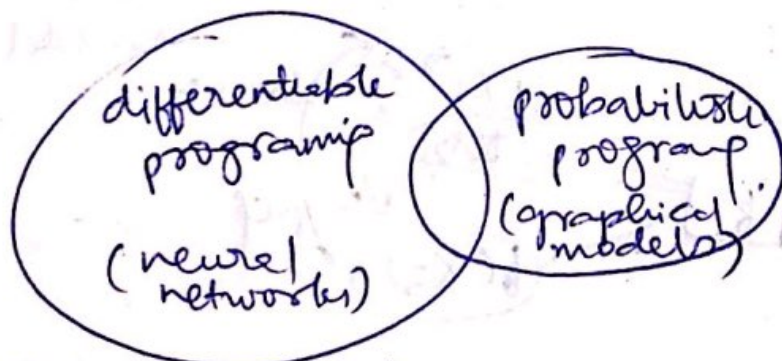 differentiable
programig
(neural
networks)
probabilistic
program
(graphical
models)